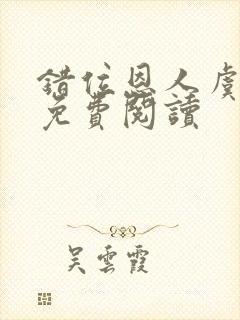 錯位恩人虞
免費閱讀
吳雲霞